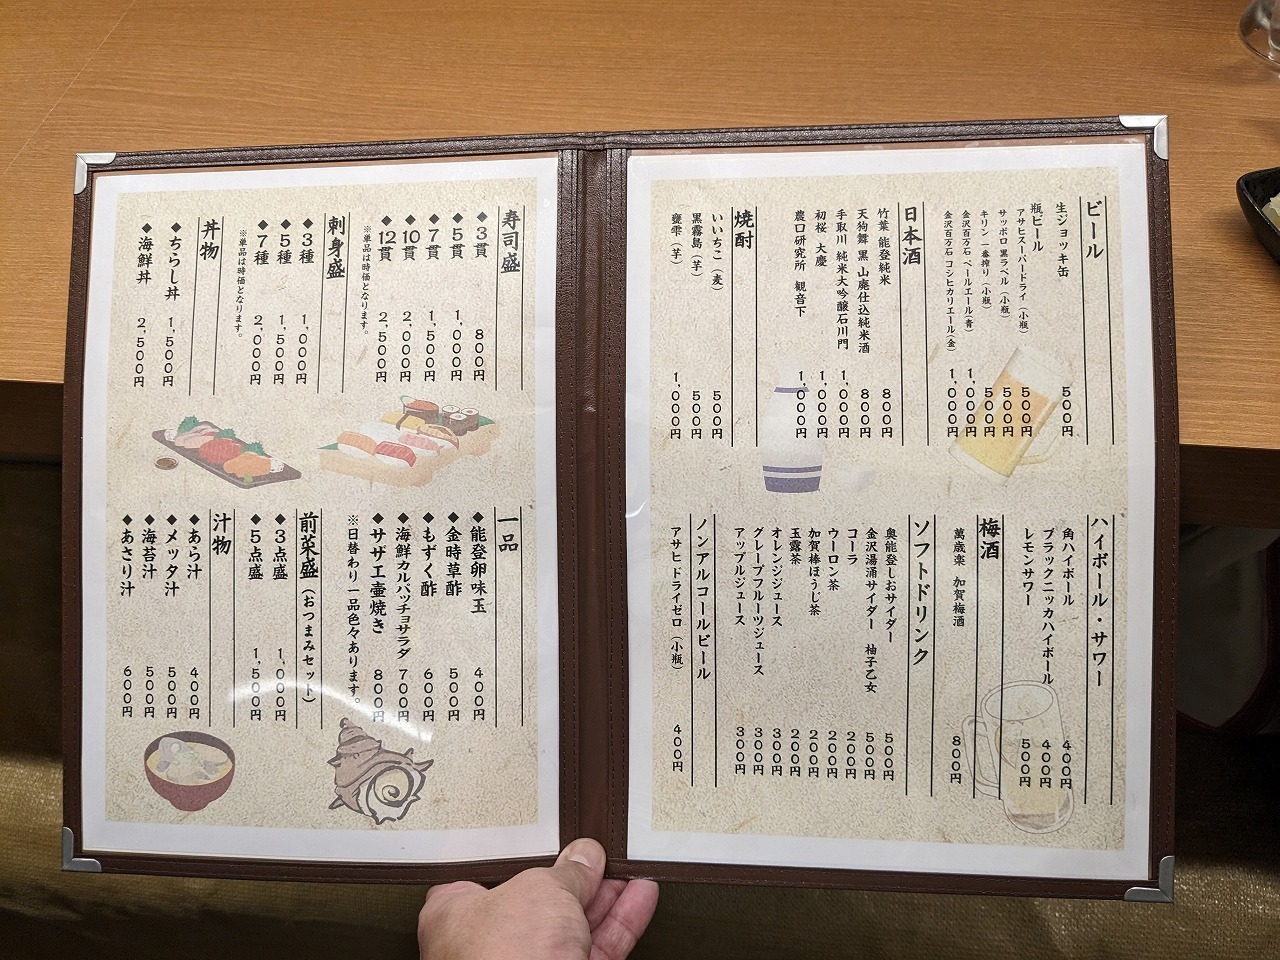 ビール
生ジョッキ缶 500円
瓶ビール
アサヒスーパードライ(小瓶) 500円
サッポロ 黒ラベル(小瓶) 500円
キリン 一番搾り(小瓶) 500円
金沢百万石 ペールエール(青) 1,000円
金沢百万石 コシヒカリエール(金) 1,000円
日本酒
竹葉 能登純米 800円
天狗舞 黒 山廃仕込純米酒 800円
手取川 純米大吟醸石川門 1,000円
初桜 大慶 1,000円
農口研究所 観音下 1,000円
焼酎
いいちこ(麦) 500円
黒霧島(芋) 500円
甕雫(芋) 1,000円
ハイボール・サワー
角ハイボール 400円
ブラックニッカハイボール 400円
レモンサワー 500円
梅酒
萬歳楽 加賀梅酒 800円
ソフトドリンク
奥能登しおサイダー 500円
金沢湯涌サイダー 柚子乙女 500円
コーラ 200円
ウーロン茶 200円
加賀棒ほうじ茶 200円
玉露茶 200円
オレンジジュース 300円
グレープフルーツジュース 300円
アップルジュース 300円
ノンアルコールビール
アサヒ ドライゼロ(小瓶) 400円
寿司盛
◆3貫 800円
◆5貫 1,000円
◆7貫 1,500円
◆10貫 2,000円
◆12貫 2,500円
※単品は時価となります。
刺身盛
◆3種 1,000円
◆5種 1,500円
◆7種 2,000円
※単品は時価となります。
丼物
◆ちらし丼 1,500円
◆海鮮丼 2,500円
一品
◆能登卵味玉 400円
◆金時草酢 500円
◆もずく酢 600円
◆海鮮カルパッチョサラダ 700円
◆サザエ壷焼き 800円
※日替わり一品色々あります。
前菜盛(おつまみセット)
◆3点盛 1,000円
◆5点盛 1,500円
汁物
◆あら汁 400円
◆メッタ汁 500円
◆海苔汁 500円
◆あさり汁 600円